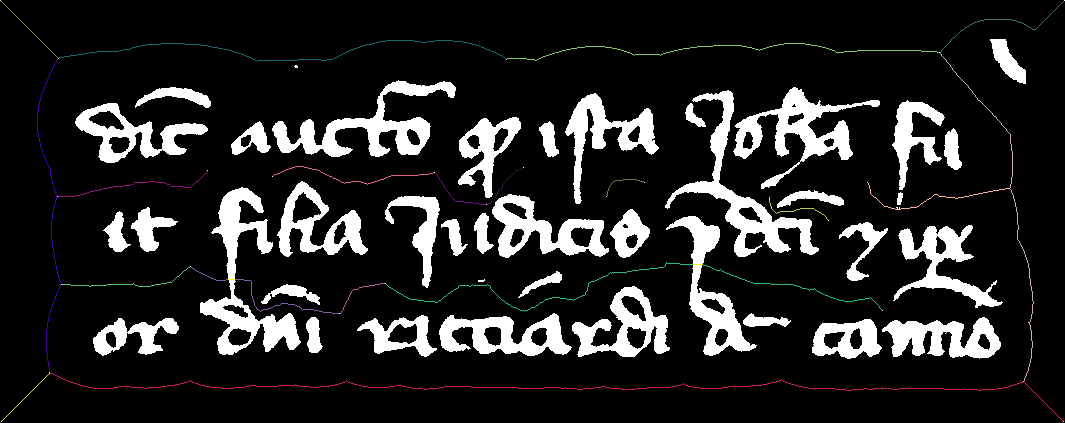 dic aucto qp ista Joha fu
it filia Judicis pdci ⁊ ux
or dni ricciardi d canno